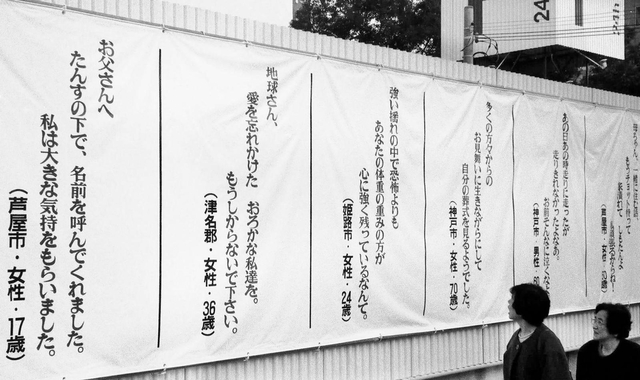 24
24h
母ちゃん、一緒に住む迄、
もうチョット待って
あの日あの時走りに走ったが
走りきれなかったなあ。
お前そんなに泣くな
神戸市・男性・60
多くの方々からの
お見舞いに生きながらにして
自分の葬式を見るようでした。
（神戸市・女性・70歳）
強い揺れの中で恐怖よりも
あなたの体重の重みの方が
心に強く残っているなんて。
（姫路市・女性・24歳）
地球さん、
愛を忘れかけた　おろかな私達を。
もうしからないで下さい。
（津名郡・女性・36歳）
お父さんへ
たんすの下で、名前を呼んでくれました。
私は大きな気持をもらいました。
（芦屋市・女性・17歳）